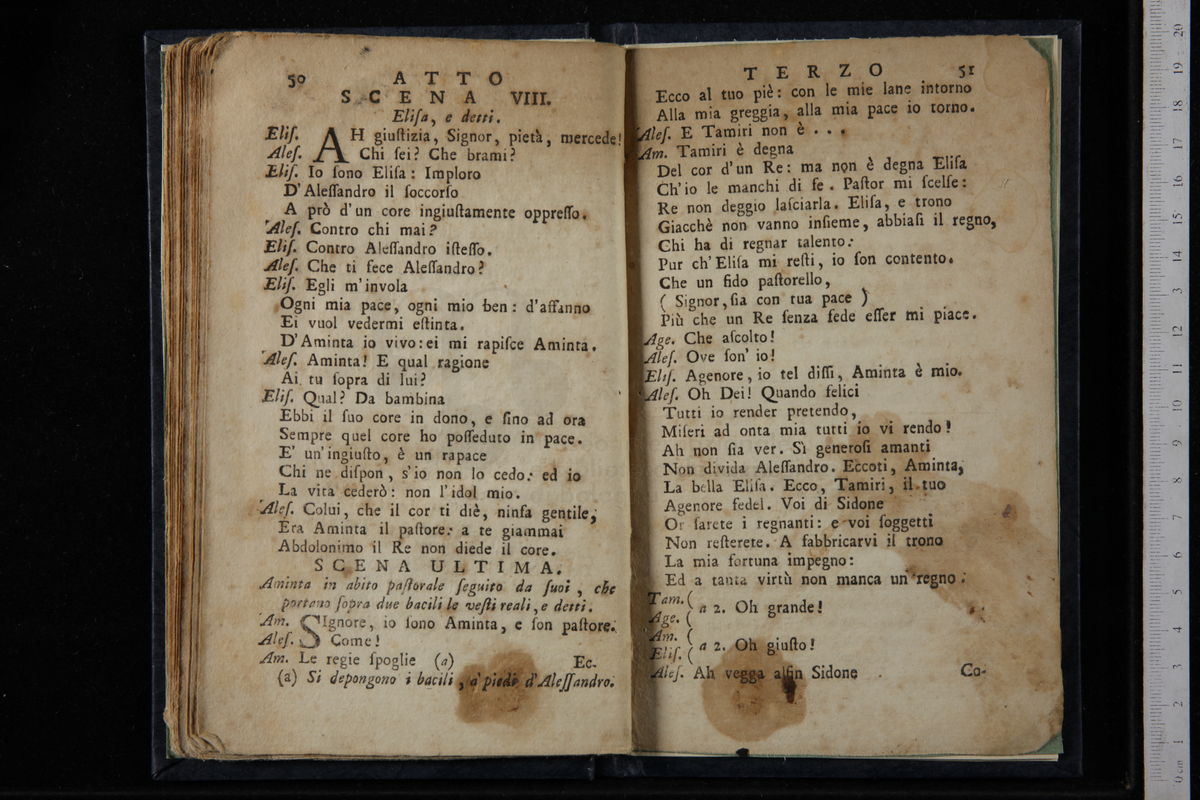 50 ATTO
SCENA VIII.
Eliſa, e detti.
Eliſ. AH giuſtizia, Signor, pietà, mercede!
Aleſ. Chi ſei? Che brami?
Eliſ. Io ſono Eliſa: Imploro
D'Aleſſandro il ſoccorſo
A prò d'un core ingiuſtamente oppreſſo.
Aleſ. Contro chi mai?
Eliſ. Contro Aleſſandro iſteſſo.
Aleſ. Che ti fece Aleſſandro?
Eliſ. Egli m'invola
Ogni mia pace, ogni mio ben: d'affanno
Ei vuol vedermi eſtinta.
D'Aminta io vivo: ei mi rapiſce Aminta.
Aleſ. Aminta! E qual ragione
Ai tu ſopra di lui?
Eliſ. Qual? Da bambina
Ebbi il ſuo core in dono, e ſino ad ora
Sempre quel core ho poſſeduto in pace.
E' un'ingiuſto, è un rapace
Chi ne diſpon, s'io non lo cedo: ed io
La vita cederò: non l'idol mio.
Aleſ. Colui, che il cor ti diè, ninfa gentile,
Era Aminta il paſtore: a te giammai
Abdolonimo il Re non diede il core.
SCENA ULTIMA.
Aminta in abito paſtorale ſeguito da ſuoi, che
portano ſopra due bacili le veſti reali, e detti.
Am. SIgnore, io ſono Aminta, e ſon paſtore.
Aleſ. Come!
Am. Le regie ſpoglie (a)
Ec-
(a) Si depongono i bacili, a' piedi d'Aleſſandro.
TERZO 51
Ecco al tuo piè: con le mie lane intorno
Alla mia greggia, alla mia pace io torno.
Aleſ. E Tamiri non è . . .
Am. Tamiri è degna
Del cor d'un Re: ma non è degna Eliſa
Ch'io le manchi di fe. Paſtor mi ſcelſe:
Re non deggio laſciarla. Eliſa, e trono
Giacchè non vanno inſieme, abbiaſi il regno,
Chi ha di regnar talento:
Pur ch'Eliſa mi reſti, io ſon contento.
Che un fido paſtorello,
( Signor, ſia con tua pace )
Più che un Re ſenza fede eſſer mi piace.
Age. Che aſcolto!
Aleſ. Ove ſon' io!
Eliſ. Agenore, io tel diſſi, Aminta è mio.
Aleſ. Oh Dei! Quando felici
Tutti io render pretendo,
Miſeri ad onta mia tutti io vi rendo!
Ah non ſia ver. Sì generoſi amanti
Non divida Aleſſandro. Eccoti, Aminta,
La bella Eliſa. Ecco, Tamiri, il tuo
Agenore fedel. Voi di Sidone
Or ſarete i regnanti: e voi ſoggetti
Non reſterete. A fabbricarvi il trono
La mia fortuna impegno:
Ed a tanta virtù non manca un regno.
Tam. (
a 2. Oh grande!
Age. (
Am. (
a 2. Oh giuſto!
Eliſ. (
Aleſ. Ah vegga alfin Sidone
Co-
0 cm 1 2 3 4 5 6 7 8 9 10 11 12 13 14 15 16 17 18 19 20